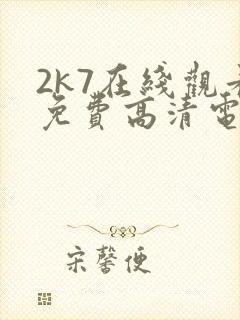 2k7在綫觀看
免費高清電
宋馨便